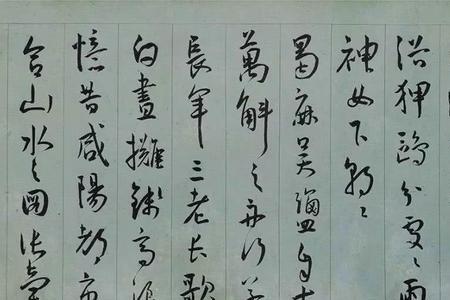 浴狎鷗分處〻雨
神女下朝〻
蜀麻吴鹽自古
萬斛之舟行若
長年三老长歌
白晝攤錢高浪
憶昔咸陽都市
合山水之圖張賣